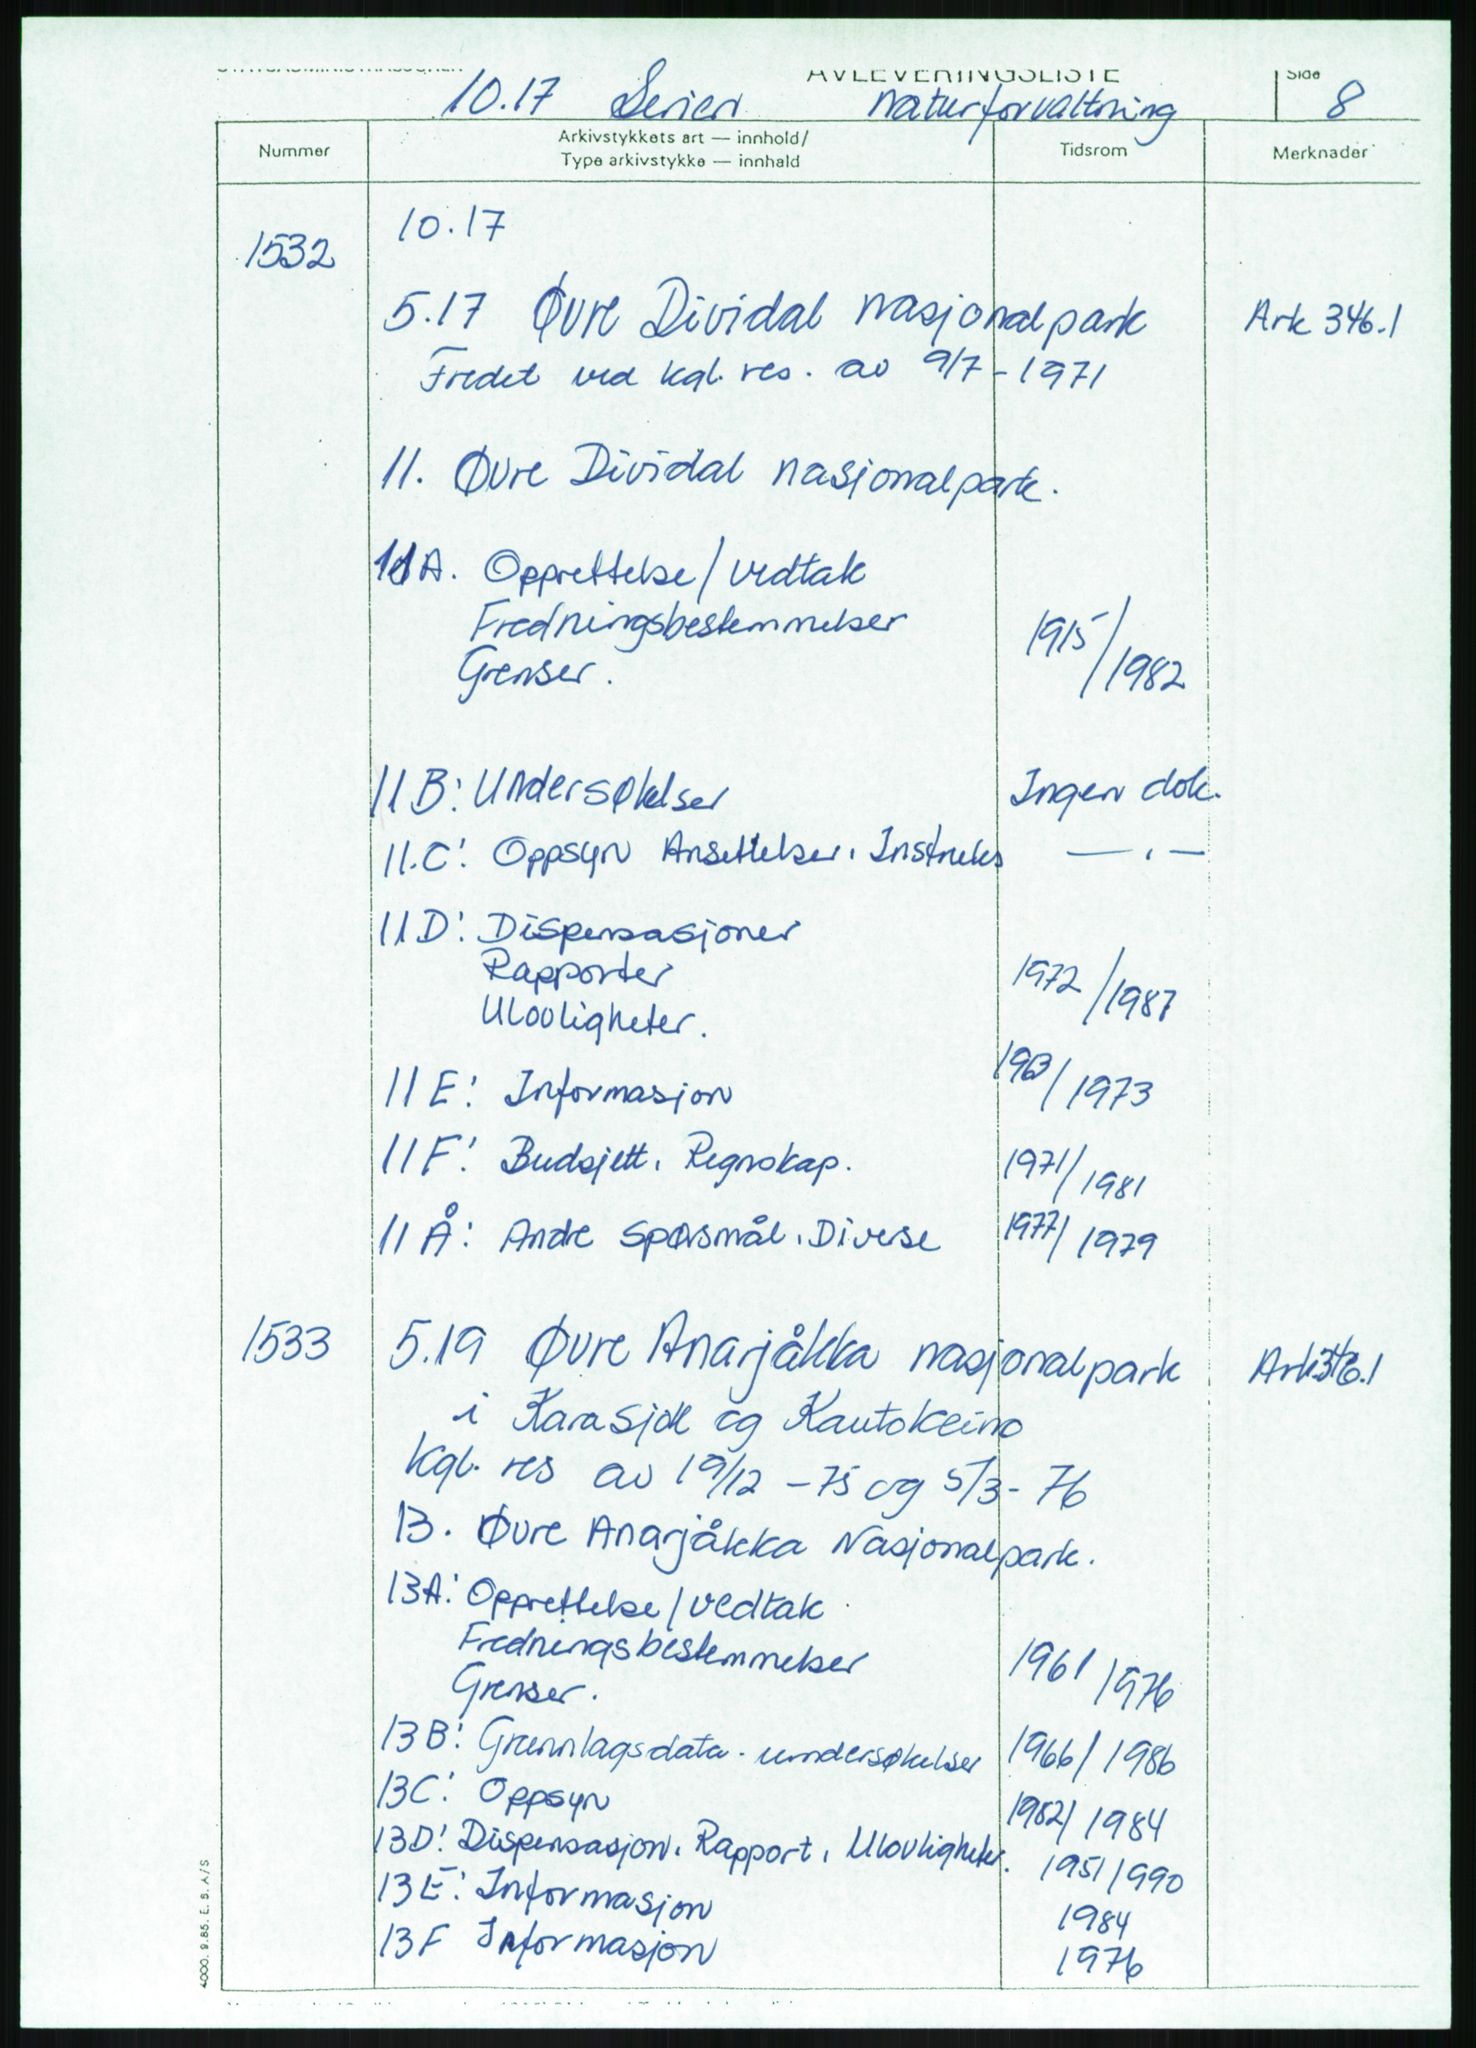 AVLEVERINGSLISTE
Side
10.17 Serien Naturforvaltning 8
Nummer
Arkivstykkets art — innhold/
Type arkivstykke — innhald
Tidsrom
Merknader
10.17
1532
5.17 Øvre Dividal nasjonalpark Ark 346.1
Fredet ved kgl. res. av 9/7-1971
11. Øvre Dividal nasjonalpark.
11A. Opprettelse/vedtak
Fredningsbestemmelser 1915/
Grenser. 1982
11B: Undersøkelser Ingen dok.
11.C: Oppsyn Ansettelser. Instruks — . —
11D: Dispensasjoner
Rapporter 1972/
Ulovligheter. 1987
11E: Informasjon 1963/1973
11F: Budsjett. Regnskap. 1971/1981
11Å: Andre spørsmål. Diverse 1977/1979
1533 5.19 Øvre Anarjåkka nasjonalpark Ark 346.1
i Karasjok og Kautokeino
Kgl. res av 19/12 -75 og 5/3-76
13. Øvre Anarjåkka Nasjonalpark.
13A: Opprettelse/vedtak
Fredningsbestemmelser 1961/1976
Grenser.
13B: Grunnlagsdata - undersøkelser 1966/1986
13C: Oppsyn 1982/1984
13D: Dispensasjon. Rapport. Ulovligheter. 1951/1990
13E: Informasjon 1984
13F Informasjon 1976
4000. 9.85. E. B. A/S